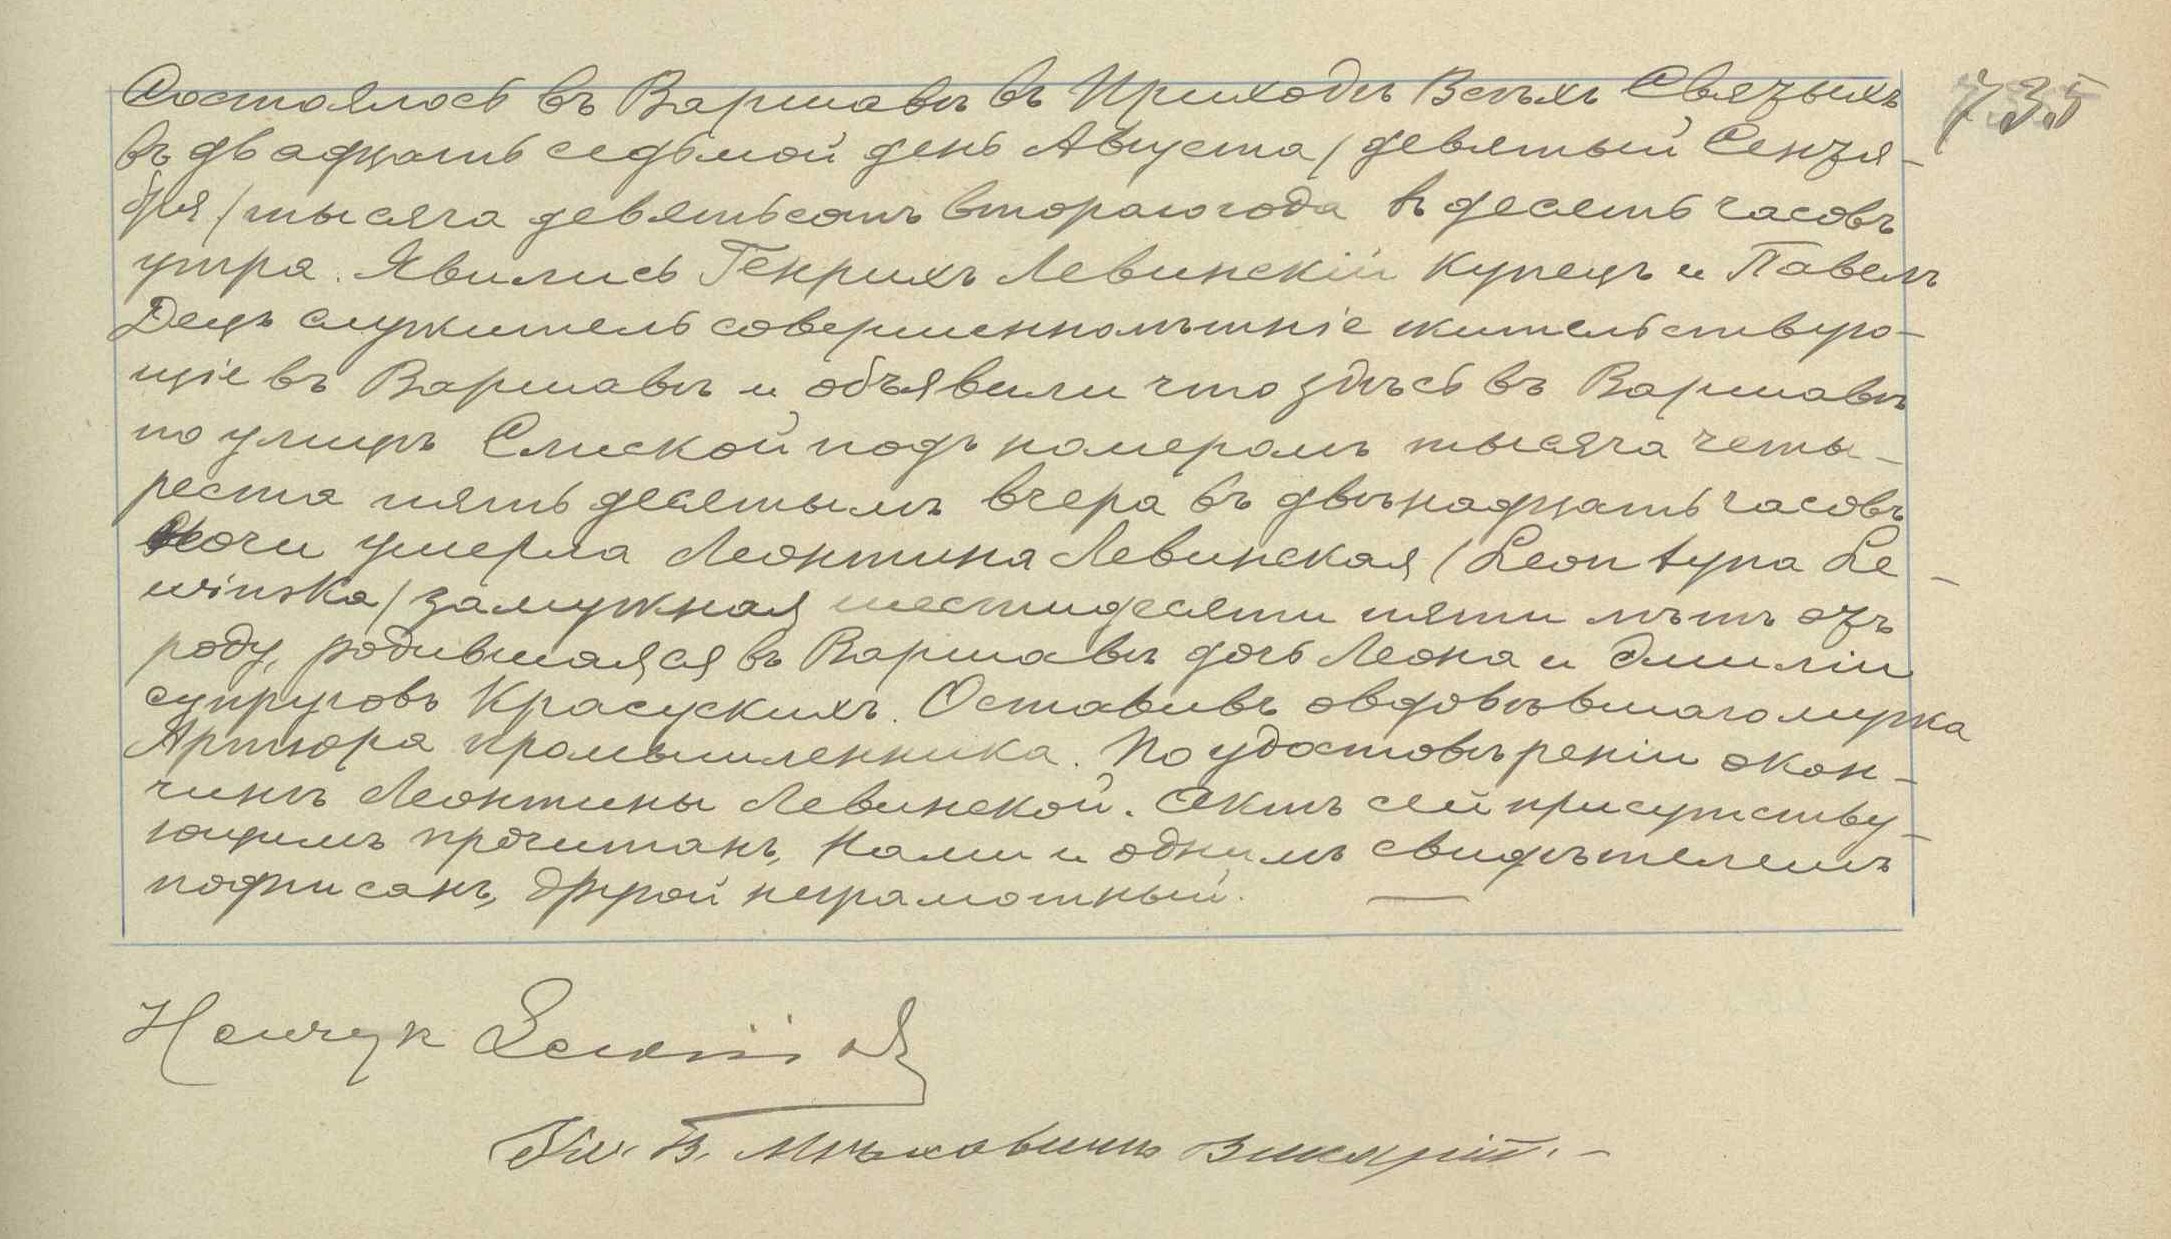 Состоялось въ Варшавѣ въ Приходѣ Всѣхъ Святыхъ
735
въ двадцать седьмой день Августа / девятый Сентя-
бря / тысяча девятьсотъ втораго года въ десять часовъ
утра. Явились Генрихъ Левинскій купецъ и Павелъ
Децъ служитель совершеннолѣтніе жительствую-
щіе въ Варшавѣ и объявили что здѣсь въ Варшавѣ
по улицѣ Слиской подъ номеромъ тысяча четы-
реста пять десятымъ вчера въ двѣнадцать часовъ
ночи умерла Леонтина Левинская / Leontyna Le-
winska / замужная шестидесяти пяти лѣтъ отъ
роду, родившаяся въ Варшавѣ дочь Леона и Эмиліи
супруговъ Красускихъ. Оставивъ овдовѣвшаго мужа
Артюра промышленника. По удостовѣреніи окон-
чинѣ Леонтины Левинской. Актъ сей присутству-
ющимъ прочитанъ, Нами и однимъ свидѣтелемъ
подписанъ, другой неграмотный.
Henryk Lewiński
Кс. В. Викарій.